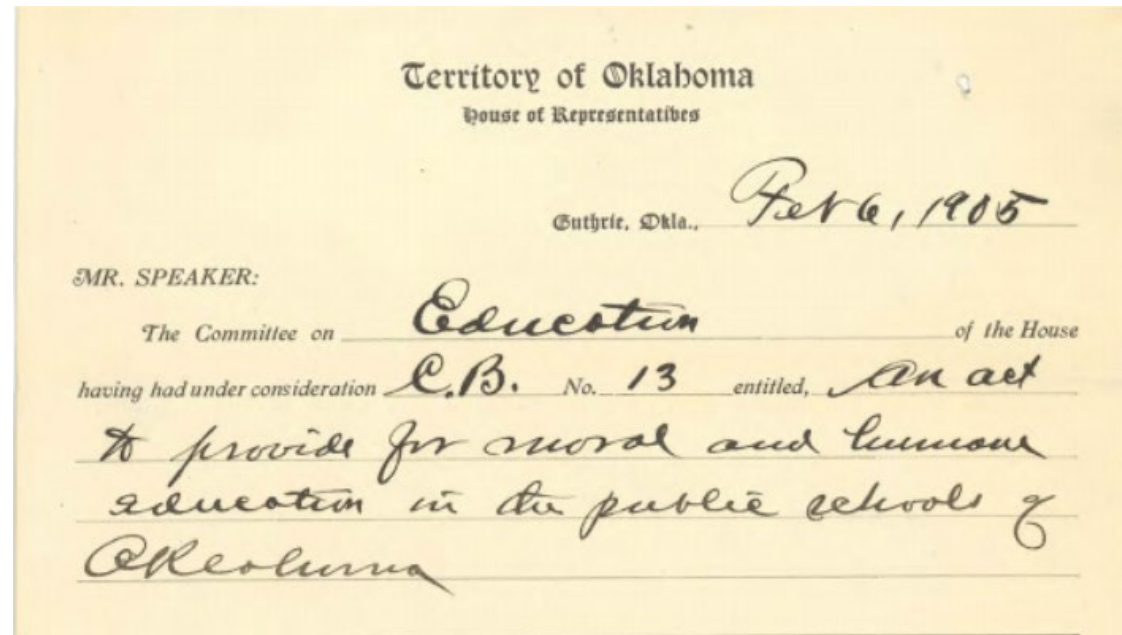 Territory of Oklahoma
House of Representatives
Guthrie, Okla., Feb 6, 1905
MR. SPEAKER:
The Committee on Education of the House
having had under consideration C.B. No. 13 entitled, An act
to provide for moral and humane
education in the public schools of
Oklahoma